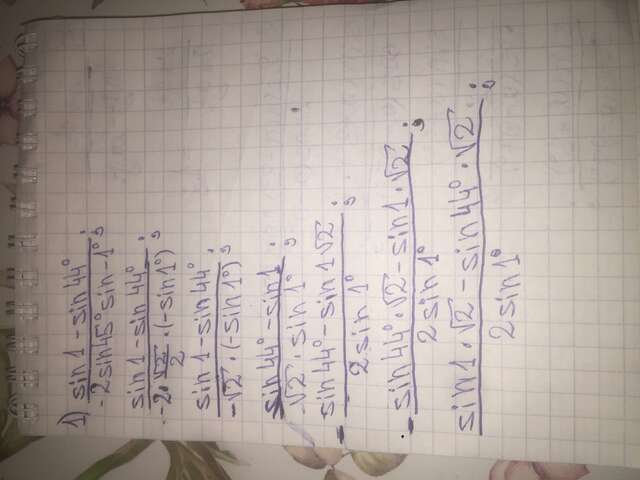 1) sin1 - sin44° ;
-2sin45° sin -1° ;
sin1 - sin44° ;
-2·√2/2 · (-sin1°) ;
sin1 - sin44° ;
-√2 · (-sin1°) ;
sin44° - sin1 ;
-√2 · sin1° ;
- sin44° - sin1√2 ;
2sin1°
- sin44° · √2 - sin1 · √2 ;
2sin1° ;
sin1 · √2 - sin44° · √2 ;
2sin1° ;